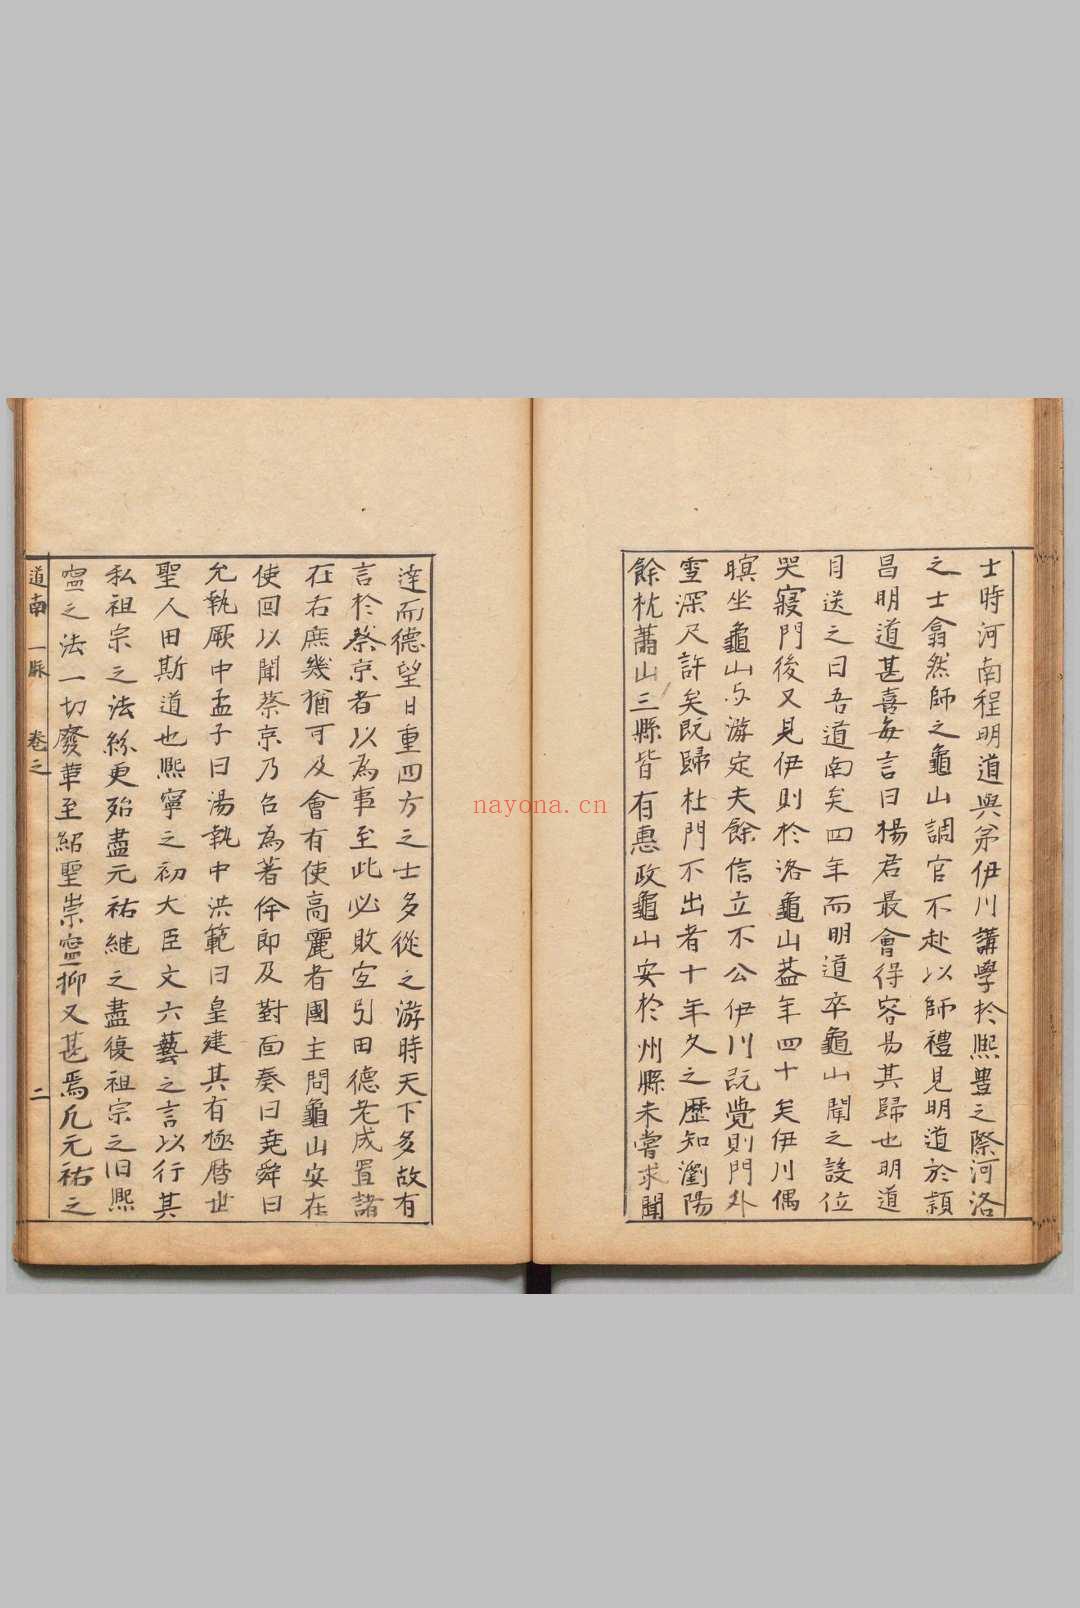 士時河南程明道與弟伊川講學於熙豊之際河洛
之士翕然師之龜山調官不赴以師禮見明道於頴
昌明道甚喜每言曰楊君最會得容易其歸也明道
目送之曰吾道南矣四年而明道卒龜山聞之設位
哭寢門後又見伊川於洛龜山葢年四十矣伊川偶
瞑坐龜山与游定夫餘信立不公伊川旣覺則門外
雪深尺許矣旣歸杜門不出者十年久之歷知瀏陽
餘杭蕭山三縣皆有惠政龜山安於州縣未嘗求聞
達而德望日重四方之士多從之游時天下多故有
言於蔡京者以為事至此必敗宐引田德老成置諸
在右庶幾猶可及會有使高麗者國主問龜山安在
使回以聞蔡京乃召為著作即及對面奏曰堯舜曰
允執厥中孟子曰湯執中洪範曰皇建其有極曆世
聖人田斯道也熙寧之初大臣文六藝之言以行其
私祖宗之法紛更殆盡元祐継之盡復祖宗之旧熙
寍之法一切廢革至紹聖崇寍抑又甚焉凡元祐之
道南一脈 卷之 二
nayona.cn